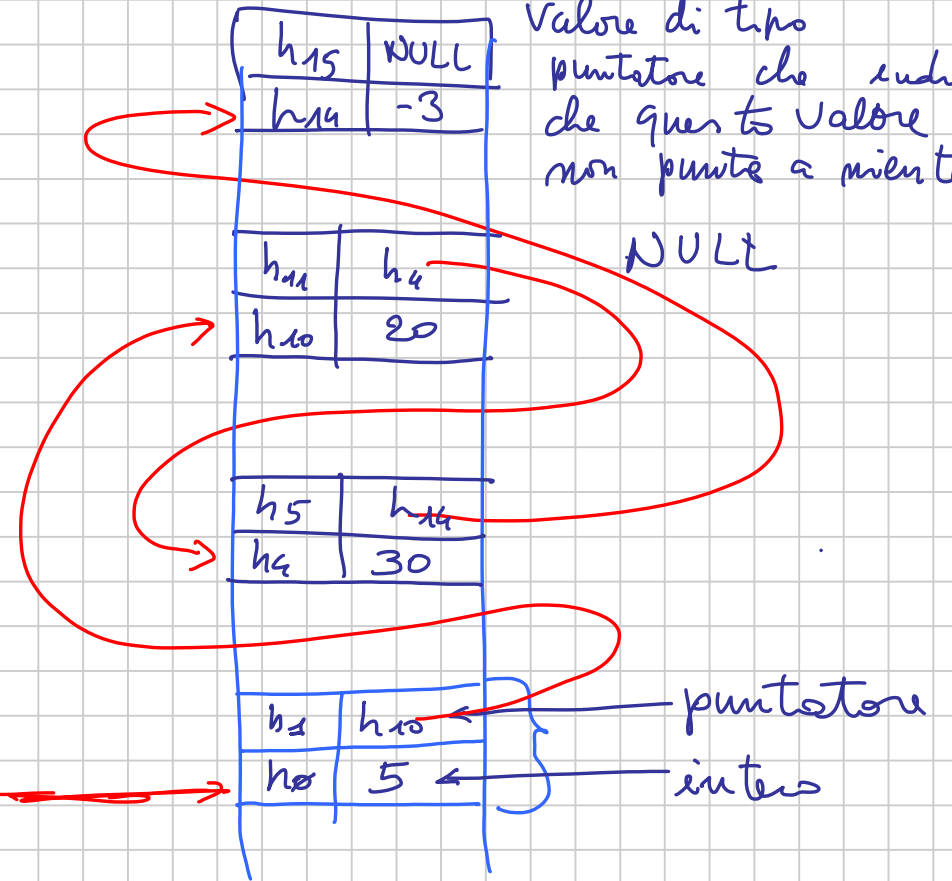 h15 NULL
h14 -3
Valore di tipo
puntatore che
che questo valore
non punta a
NULL
h11 h4
h10 20
h5 h14
h4 30
h1 h10
h0 5
puntatore
intero